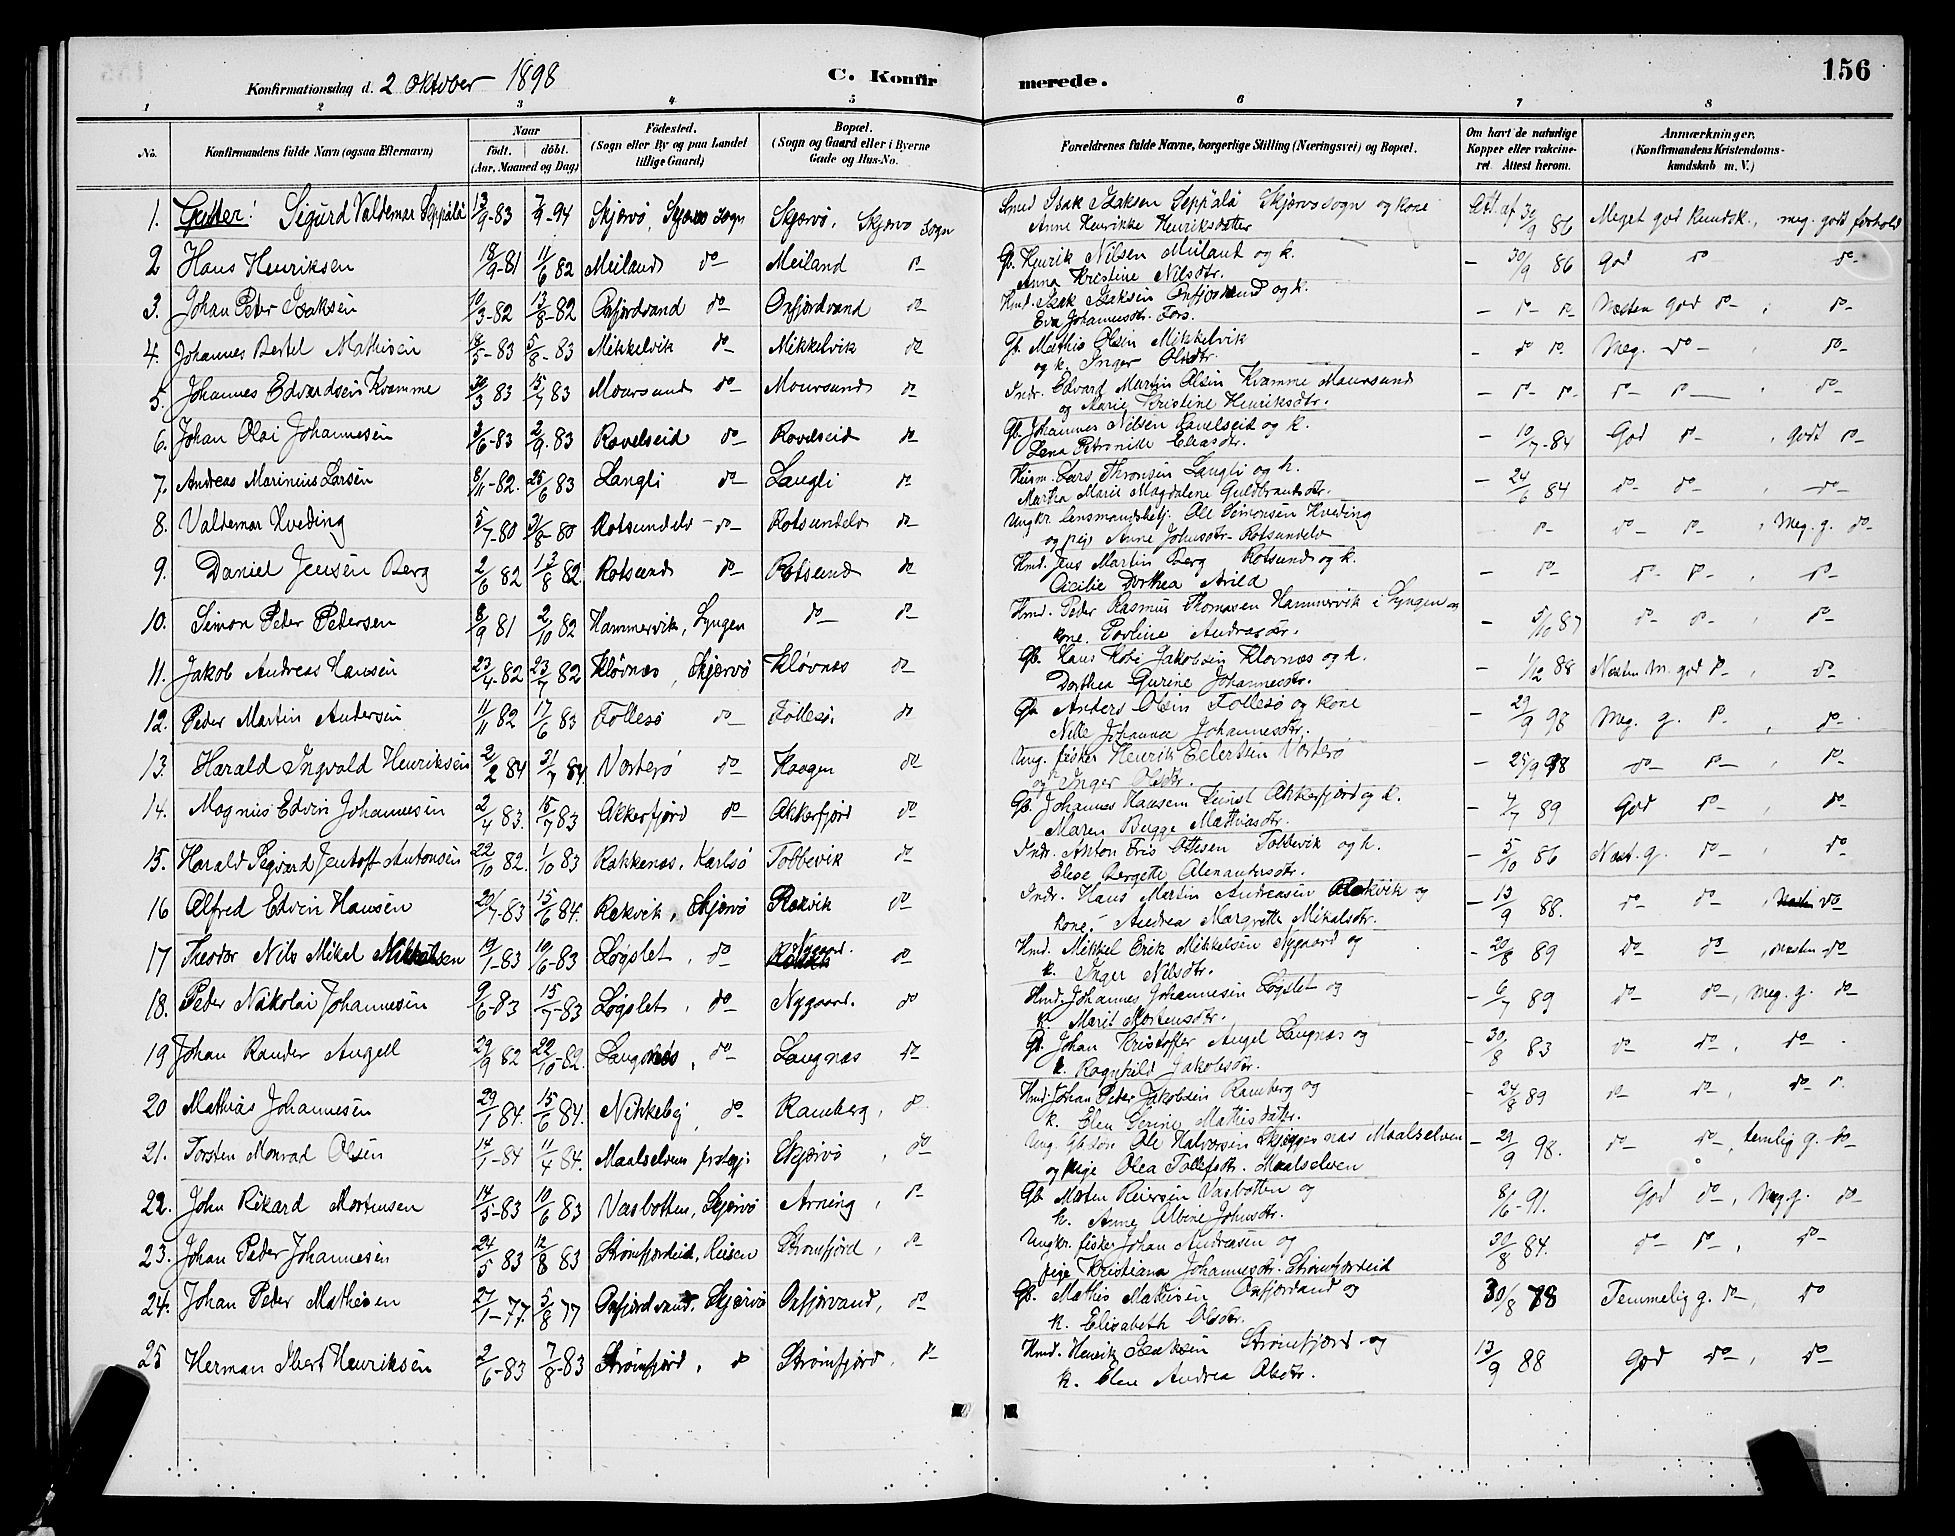 156
Konfirmationsdag d. 2 Oktober 1898 C. Konfirmerede.
1 2 3 4 5 6 7 8
No. Konfirmandens fulde Navn (ogsaa Efternavn) Naar födt. döbt. (Aar, Maaned og Dag) Födested. (Sogn eller By og paa Landet tillige Gaard) Bopæl. (Sogn og Gaard eller i Byerne Gade og Hus-No. Forældrenes fulde Navne, borgerlige Stilling (Næringsvei) og Bopæl. Om havt de naturlige Kopper eller vakcineret. Attest herom. Anmærkninger, (Konfirmandens Kristendomskundskab m. V.)
1. Gutter: Sigurd Valdemar Seppälä 13/9-83 7/9-94 Skjærvö, Skjærvö Sogn Skjærvö, Skjærvö Sogn Smed Isak Isaksen Seppälä Skjærvö sogn og kone Att. af 30/9 86 Meget god kundsk., meg. godt forhold
Anne Henrikke Henriksdatter
2 Hans Henriksen 18/9-81 11/6 82 Meiland do Meiland do Gb. Henrik Nilsen Meiland og k. - 30/9 86 God do do
Anna Kristine Nilsdtr.
3. Johan Peter Isaksen 10/3-82 13/8-82 Oxfjordvand do Oxfjordvand do Hmd. Isak Isaksen Oxfjordvand og k. - do do Næsten god do, do
Eva Johannesdtr. Fors.
4. Johannes Bertel Mathisen 18/5-83 5/8-83 Mikkelvik do Mikkelvik do Gb. Mathis Olsen Mikkelvik - do do Meg. do, do
og k. Inger Olsdtr.
5. Johannes Edvardsen Kvamme 30/3 83 15/7 83 Maursund do Maursund do Indr. Edvard Martin Olsen Kvamme Maursund - do do do do, do
og Marie Kristine Henriksdtr.
6. Johan Olai Johannesen 3/6-83 2/9 83 Ravelseid do Ravelseid do Gb. Johannes Nilsen Ravelseid og k. - 10/7-84 God do, Godt do
Lena Petronille Eliasdtr.
7. Andreas Marinius Larsen 8/11-82. 25/6 83 Langli do Langli do Husm. Lars Thronsen Langli og k. - 24/6 84 do do, do
Martha Marie Magdalene Guldbrantsdtr.
8. Valdemar Hveding 5/7-80 31/8-80 Rotsundelv do Rotsundelv do Ungkr. lensmandsbetj. Ole Simonsen Hveding do do do, Meg. g. do
og pige Anne Johnsdtr. Rotsundelv
9. Daniel Jensen Berg 2/6 82 13/8 82 Rotsund do Rotsund do Hmd. Jens Martin Berg Rotsund og k. - do do do, do
Cicilie Dorthea Arild
10. Simon Peter Petersen 8/9 81 2/10 82 Hammervik, Lyngen do do Hmd. Peder Rasmus Thomasen Hammervik i Lyngen og - 5/10 87 do do, do
kone. Povline Andrasdtr.
11. Jakob Andreas Hansen 23/4-82 23/7 82 Kløvnæs, Skjærvö Kløvnæs do Gb. Hans Kobi Jakobsen Klovnæs og k. - 1/12 88 Næsten M. god do, do
Dorthea Gurine Johannesdtr.
12. Peder Martin Andersen 11/11 82 17/6 83 Follesö do Follesö. do Gb. Anders Olsen Follesö og kone - 29/9 98 Meg. g. do, do
Nille Johanna Johannesdtr.
13. Harald Ingvald Henriksen 2/2 84 31/7 84 Vorterö do Kaagen do Ung. fisker Henrik Eilertsen Vorterö - 25/9 98 do do, do
og Inger Olsdtr.
14. Magnus Edvin Johannesen 2/4 83. 15/7 83 Akkerfjord do Akkerfjord do Gb. Johannes Hansen Akkerfjord og k. - 4/7 89 God do, do
Maren Bugge Mathiasdtr.
15. Harald Sigvard Jentoft Antonsen 22/10 82. 1/10 83 Rakkenæs, Karlsö Tobbevik do Indr. Anton Eris Ottesen Tobbevik og k. - 5/10 86 Næst. g. do, do
Elise Bergette Alexandersdtr.
16 Alfred Edvin Hansen 20/7-83 15/6 84. Rekvik, Skjærvö Rekvik do Indr. Hans Martin Andreasen Rekvik og - 13/9 88. do do, do
kone. Andrea Margrethe Mikalsdtr.
17 Theodor Nils Mikel Mikkelsen 19/1-83 10/6-83 Løgslet, do Nygaard. do Hmd. Mikkel Erik Mikkelsen Nygaard og - 20/8 89 do do, næsten do
k. Inger Nilsdtr.
18. Peder Nikolai Johannesen 9/6-83 15/7-83 Løgslet, do Nygaard. do Hmd. Johannes Johannesen Løgslet og - 6/7 89 do do, Meg. g. do
k. Marit Mortensdtr.
19 Johan Rander Angell 29/9 82 22/10-82. Laugnæs, do Laugnæs do Gb. Johan Kristoffer Angel Laugnæs og - 30/8 83 do do, do
k. Ragnhild Jakobsdtr.
20 Mathias Johannesen 29/1 84. 15/6 84. Nikkeby, do Ramberg, do Hmd. Johan Peder Jakobsen Ramberg og - 24/8 89 do do, do do
k. Elen Serine Mathisdatter.
21. Torsten Monrad Olsen 14/1-84 11/4 84. Maalselvens prstegj. Skjærvö, do Ung. Gbsøn Ole Halvorsen Skjæggesnæs Maalselven - 29/9 98. do do, temlig g. do
og pige Olea Tollefsdtr. Maalselven
22. John Rikard Mortensen 14/5-83 10/6 83 Vasbotten, Skjærvö Arning, do Gb. Morten Reiersen Vasbotten og 8/6-91. God do, Meg. g. do
k. Anne Albine Johnsdtr.
23. Johan Peder Johannesen 24/5 83 12/8 83 Strømfjordeid, Reisen Strømfjord, do Ungkr. fisker Johan Andreasen og 30/8 84. do do, do
pige Kristiana Johannesdtr. Strømfjordeid
24. Johan Peder Mathisen 27/1-77. 5/8 77 Oxfjordvand, Skjærvö Oxfjorvand, do Gb. Mathis Mathisen Oxfjordvand og 30/8 78 Temmelig g. do, do
k. Elisabeth Olsdtr.
25 Herman Ibert Henriksen 2/6-83 7/8-83 Strømfjord, do Strømfjord, do Hmd. Henrik Isaksen Strømfjord og 13/9 88 God do, do
k. Elen Andrea Olsdtr.